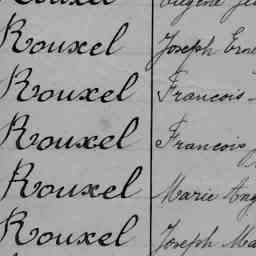 Rouxel Joseph
Rouxel Francois
Rouxel Francois
Rouxel Marie Ang
Rouxel Joseph Ma